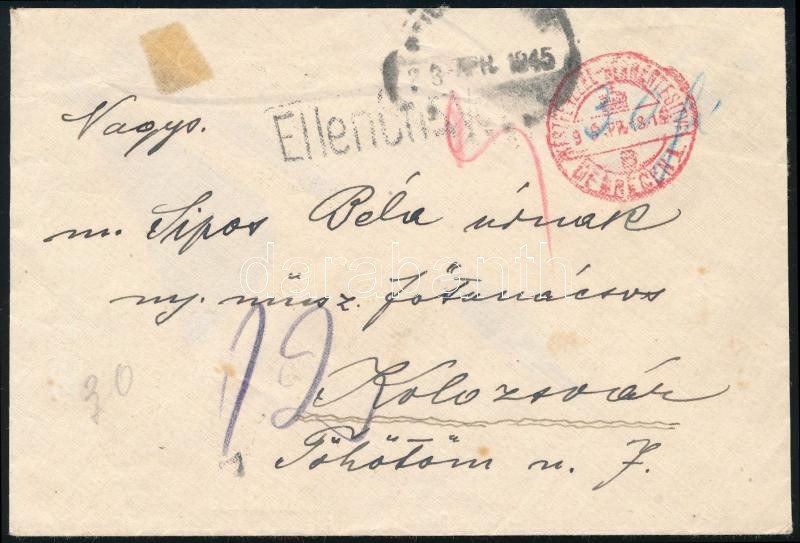 23 APR. 1945
Nagys.
m. Sipos Béla úrnak
ny. műsz. főtanácsos
12
30
Kolozsvár
Töhötöm u. 7.
DEBRECEN
B
darabanth